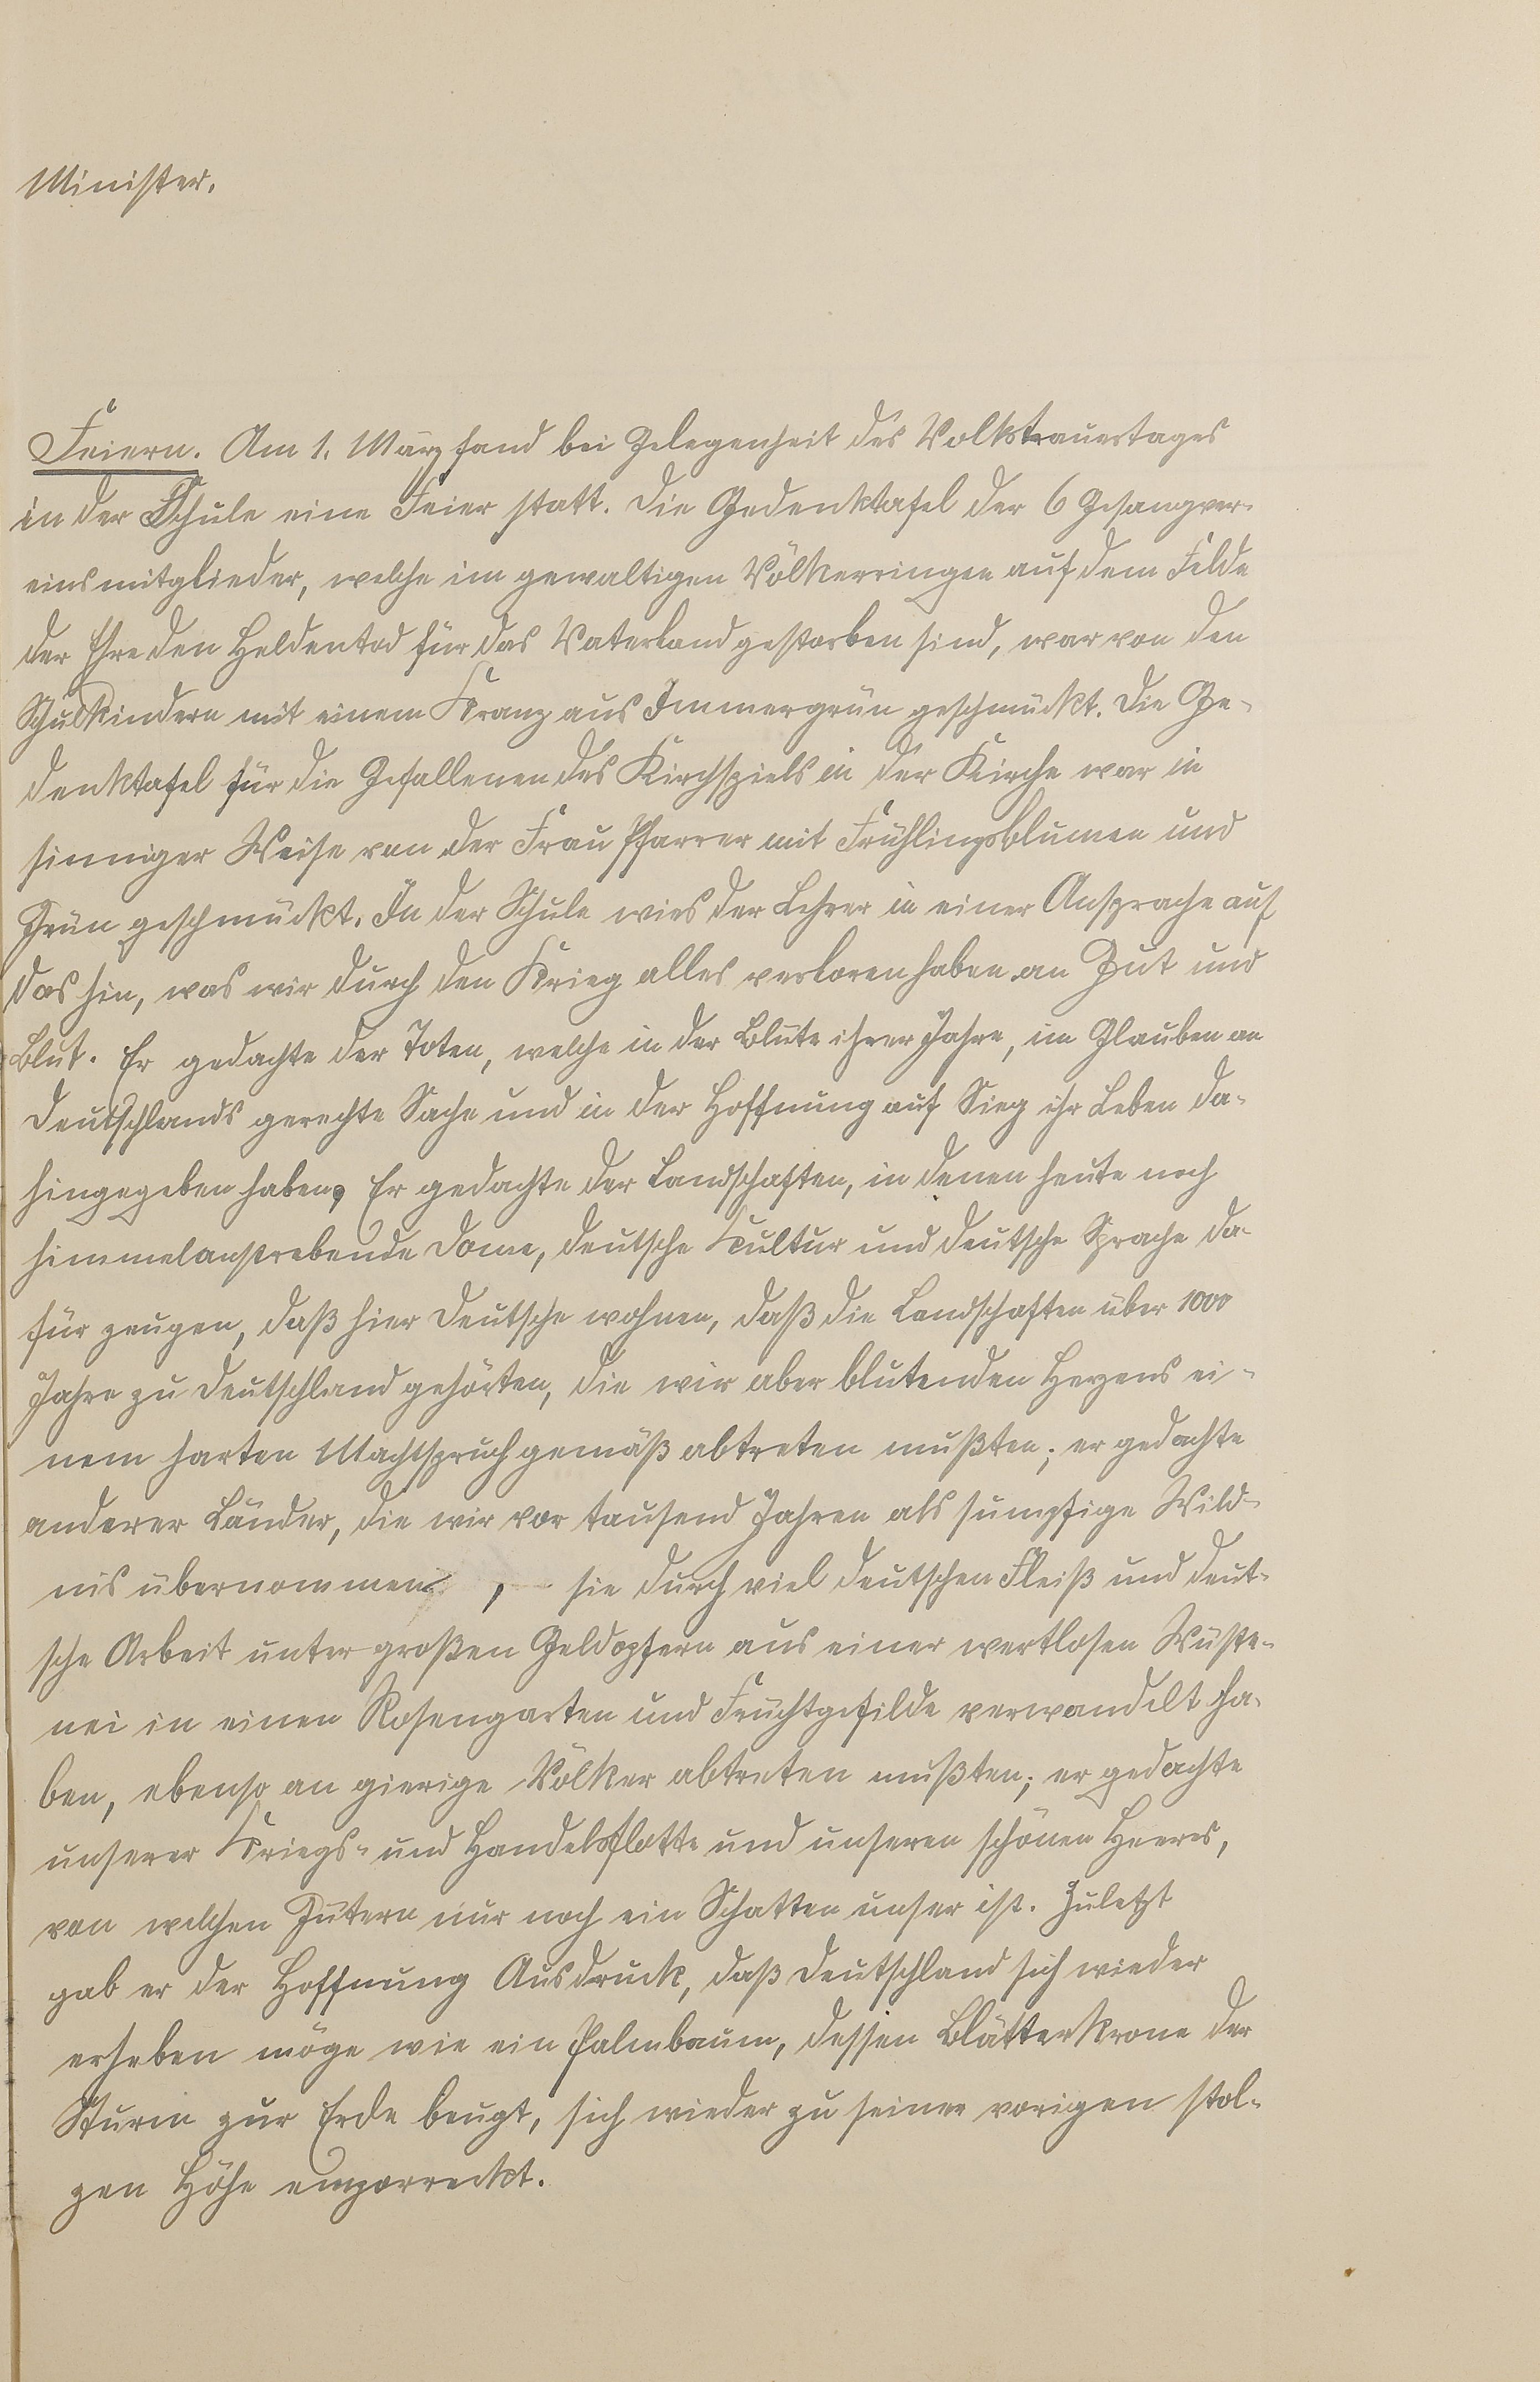 Minister.
Feiern. Am 1. März fand bei Gelegenheit des Volkstrauertages
in der Schule eine Feier statt. Die Gedenktafel der 6 Gesangver-
einsmitglieder, welche im gewaltigen Völkerringen auf dem Felde
der Ehre den Heldentod für das Vaterland gestorben sind, war von den
Schulkindern mit einem Kranz aus Immergrün geschmückt. Die Ge-
denktafel für die Gefallenen des Kirchspiels in der Kirche war in
sinniger Weise von der Frau Pfarrer mit Frühlingsblumen und
Grün geschmückt. In der Schule wies der Lehrer in einer Ansprache auf
das hin, was wir durch den Krieg alles verloren haben an Gut und
Blut. Er gedachte der Toten, welche in der Blüte ihrer Jahre, im Glauben an
Deutschlands gerechte Sache und in der Hoffnung auf Sieg ihr Leben da-
hingegeben haben, Er gedachte der Landschaften, in denen heute noch
himmelanstrebende Dome, deutsche Kultur und deutsche Sprache da-
für zeugen, daß hier Deutsche wohnen, daß die Landschaften über 1000
Jahre zu Deutschland gehörten, die wir aber blutenden Herzens ei-
nem harten Machtspruch gemäß abtreten mußten; er gedachte
anderer Länder, die wir vor tausend Jahren als sumpfige Wild-
nis übernommen, sie durch viel deutschen Fleiß und deut-
sche Arbeit unter großen Geldopfern aus einer wertlosen Wüste-
nei in einen Rosengarten und Fruchtgefilde verwandelt ha-
ben, ebenso an gierige Völker abtreten mußten; er gedachte
unserer Kriegs- und Handelsflotte und unseren schönen Heeres,
von welchen Gütern nur noch ein Schatten unser ist. Zuletzt
gab er der Hoffnung Ausdruck, daß Deutschland sich wieder
erheben möge wie ein Palmbaum, dessen Blätterkrone der
Sturm zur Erde beugt, sich wieder zu seiner vorigen stol-
zen Höhe emporreckt.